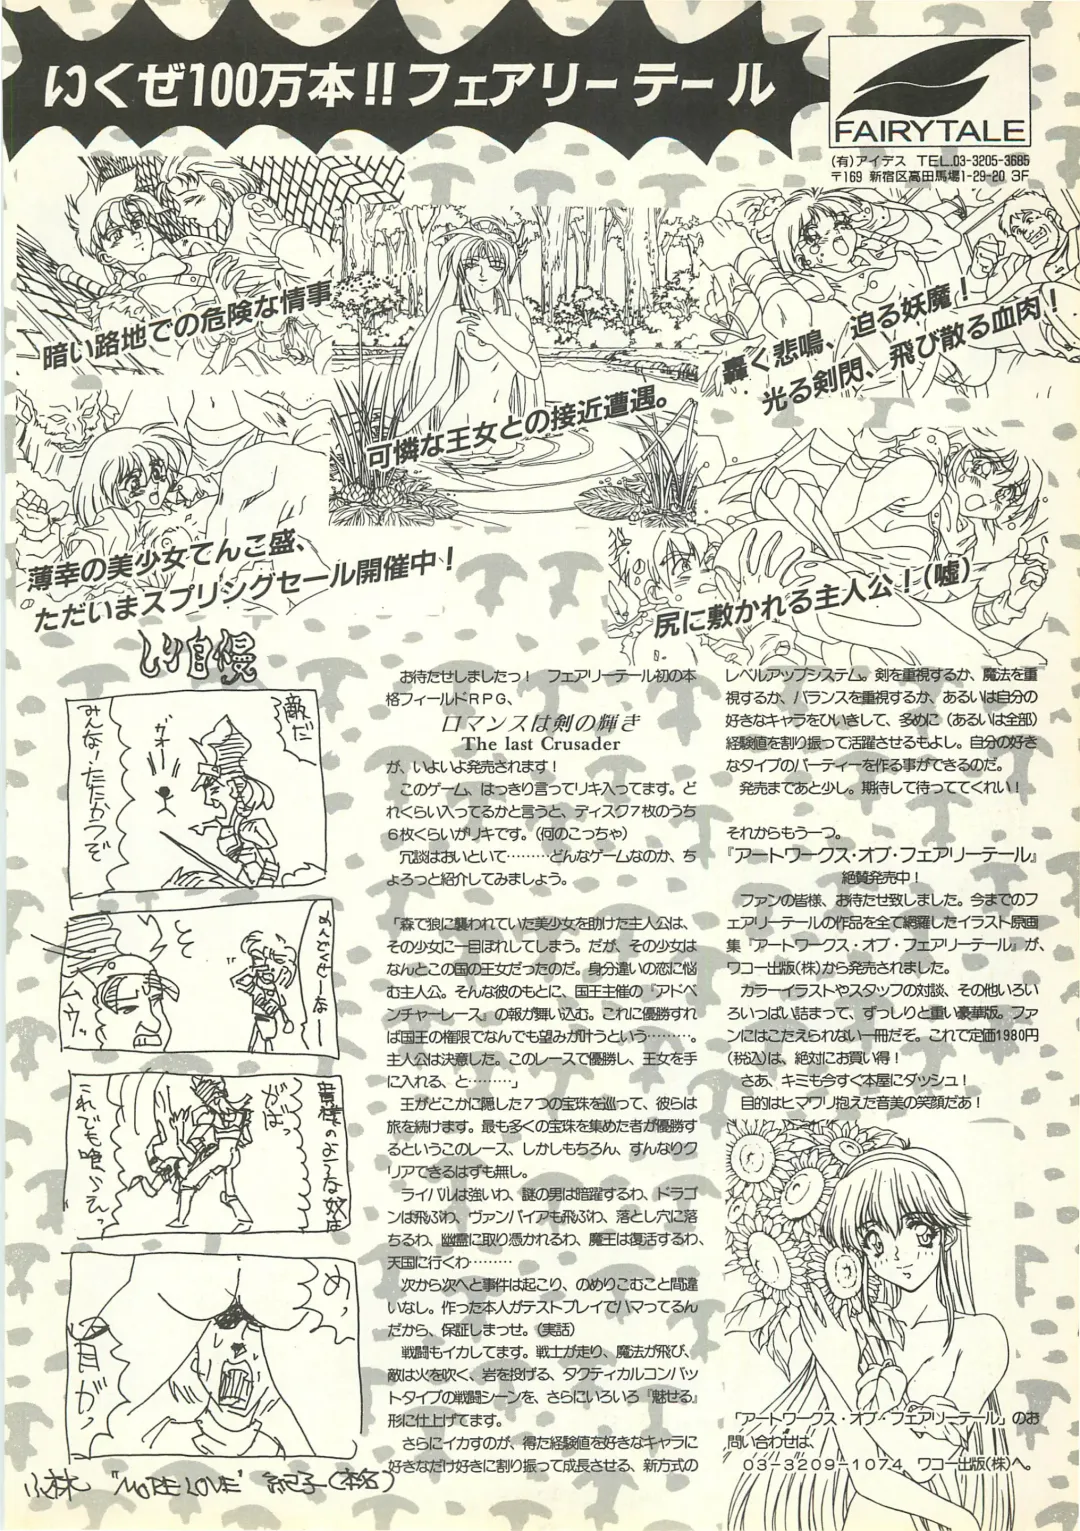 いくぜ100万本!!フェアリーテール
FAIRYTALE
(有)アイデス TEL.03-3205-3685
〒169 新宿区高田馬場1-29-20 3F
暗い路地での危険な情事
可憐な王女との接近遭遇。
轟く悲鳴、迫る妖魔！
光る剣閃、飛び散る血肉！
薄幸の美少女てんこ盛、
ただいまスプリングセール開催中！
尻に敷かれる主人公！(嘘)
敵だ
ガオー
みんなーたたかうぞ
貴様のような奴は
がばっ
これでも喰らえっ
めっ
目がっ
小林 "MORE LOVE" 紀子(本名)
お待たせしましたっ！　フェアリーテール初の本
格フィールドRPG、
ロマンスは剣の輝き
The last Crusader
が、いよいよ発売されます！
このゲーム、はっきり言ってリキ入ってます。ど
れくらい入ってるかと言うと、ディスク7枚のうち
6枚くらいがリキです。(何のこっちゃ)
冗談はおいといて………どんなゲームなのか、ち
ょろっと紹介してみましょう。
「森で狼に襲われていた美少女を助けた主人公は、
その少女に一目ぼれしてしまう。だが、その少女は
なんとこの国の王女だったのだ。身分違いの恋に悩
む主人公。そんな彼のもとに、国王主催の『アドベ
ンチャーレース』の報が舞い込む。これに優勝すれ
ば国王の権限でなんでも望みが叶うという………。
主人公は決意した。このレースで優勝し、王女を手
に入れる、と………」
王がどこかに隠した7つの宝珠を巡って、彼らは
旅を続けます。最も多くの宝珠を集めた者が優勝す
るというこのレース、しかしもちろん、すんなりク
リアできるはずも無し。
ライバルは強いわ、謎の男は暗躍するわ、ドラゴ
ンは飛ぶわ、ヴァンパイアも飛ぶわ、落とし穴に落
ちるわ、幽霊に取り憑かれるわ、魔王は復活するわ、
天国に行くわ………
次から次へと事件は起こり、のめりこむこと間違
いなし。作った本人がテストプレイでハマってるん
だから、保証しまっせ。(実話)
戦闘もイカしてます。戦士が走り、魔法が飛び、
敵は火を吹く、岩を投げる、タクティカルコンバッ
トタイプの戦闘シーンを、さらにいろいろ『魅せる』
形に仕上げてます。
さらにイカすのが、得た経験値を好きなキャラに
好きなだけ好きに割り振って成長させる、新方式の
レベルアップシステム。剣を重視するか、魔法を重
視するか、バランスを重視するか、あるいは自分の
好きなキャラをひいきして、多めに(あるいは全部)
経験値を割り振って活躍させるもよし。自分の好き
なタイプのパーティーを作る事ができるのだ。
発売まであと少し。期待して待っててくれい！
それからもう一つ。
『アートワークス・オブ・フェアリーテール』
絶賛発売中！
ファンの皆様、お待たせ致しました。今までのフ
ェアリーテールの作品を全て網羅したイラスト原画
集『アートワークス・オブ・フェアリーテール』が、
ワコー出版(株)から発売されました。
カラーイラストやスタッフの対談、その他いろい
ろいっぱい詰まって、ずっしりと重い豪華版。ファ
ンにはこたえられない一冊だぞ。これで定価1980円
(税込)は、絶対にお買い得！
さあ、キミも今すぐ本屋にダッシュ！
目的はヒマワリ抱えた音美の笑顔だあ！
「アートワークス・オブ・フェアリーテール」のお
問い合わせは、
03-3209-1074 ワコー出版(株)へ。